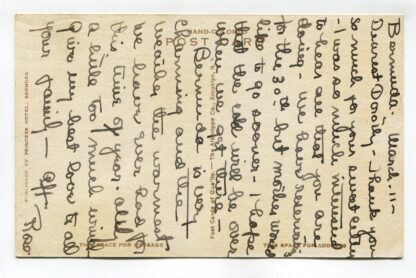 HAND-COLORED
POST CARD
PUBLISHED BY PRINCESS HOTEL, BERMUDA
THIS SPACE FOR MESSAGE
THIS SPACE FOR ADDRESS
Bermuda - March - 11 -
Dearest Dorothy - Thank you
so much for your sweet letter
- I was so much interested
to hear all that you are
doing - We have reservations
for the 30th but mother would
like to go sooner - I hope
that the cold will be over
when we get home
Bermuda is very
Charming and the
weather the warmest
we have ever had at
this time of year - altho
a little too much wind
Give my best love to all
your family -